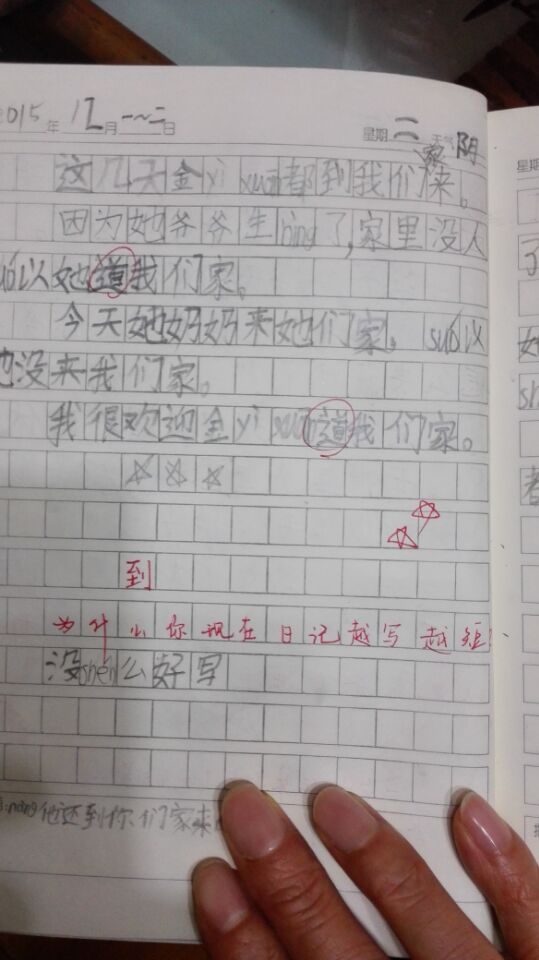 2015年12月一~二日 星期二 天气阴
这几天金yi xuan都到我们家来。
因为她爷爷生bing了,家里没人
suǒ以她道我们家。
今天她奶奶来她们家。suǒ以
她没来我们家。
我很欢迎金yi xuan道我们家。
☆☆☆
到
为什么你现在日记越写越短?
没shén么好写
他还到你们家来